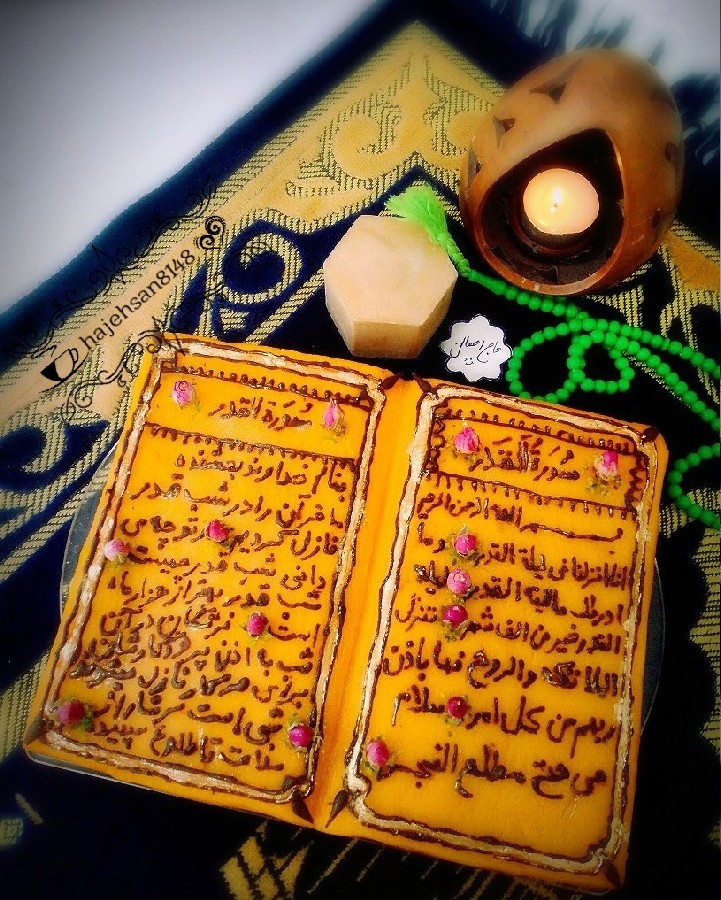 hajehsan8148
سورة القدر
بسم الله الرحمن الرحیم
انا انزلنا فی لیلة القدر وما
ادریک مالیة القدر لیلة
القدر خیر من الف شهر تنزل
الملائکة والروح فیها باذن
ربهم من کل امر سلام
هی حتی مطلع الفجر
سورة القدر
بنام خداوند بخشنده
ما قرآن را در شب قدر
نازل کردیم توچه می
دانی شب قدر چیست
شب قدر بهتر از هزار ماه
است فرشتگان در آن
شب با
برای هر کار نازل میشوند
شبی است سرشار از
سلامت تا طلوع سپیده